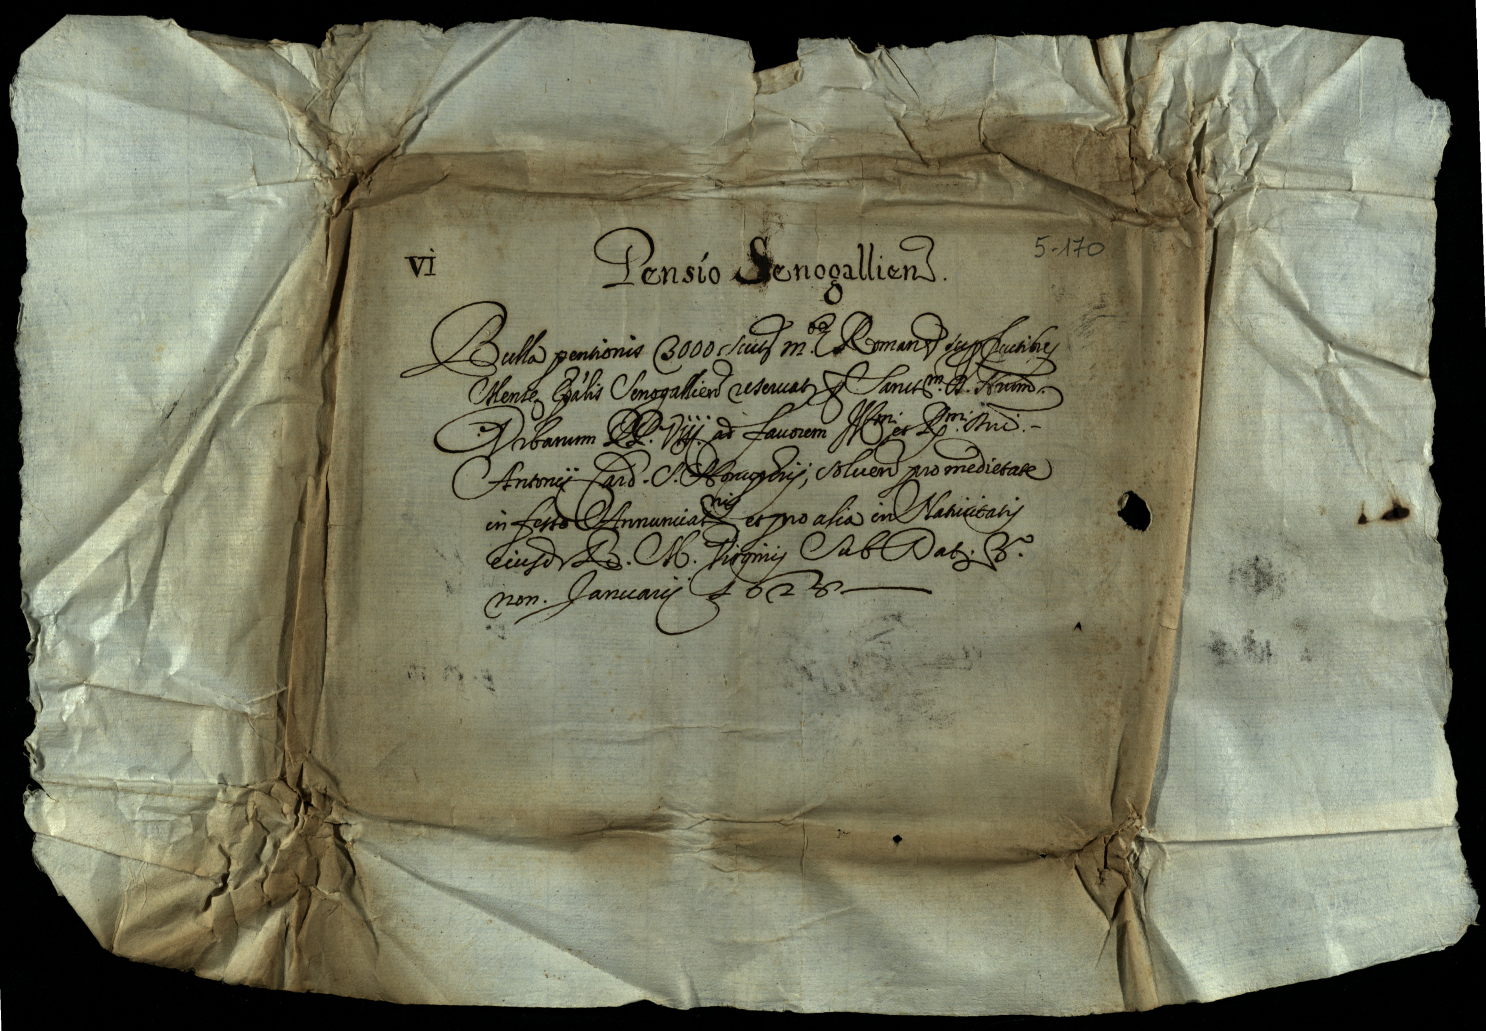 vi
Pensio Senogallien.
5-170
Bulla pentionis 3000 scut m.tæ Roman sup fructibus
Mense Epalis Senogallien reservat p Sanct.m D. Num.
Urbanum PP. Viij. ad favorem Ill.mi et R.mi Dni.-
Antonij Card. S. Honuphrij, solven pro medietate
in festo Annunciat.nis et pro alia in Nativitatis
eiusd B. M. Virginis Sub Dat. 3.º
non. Januarij 1628